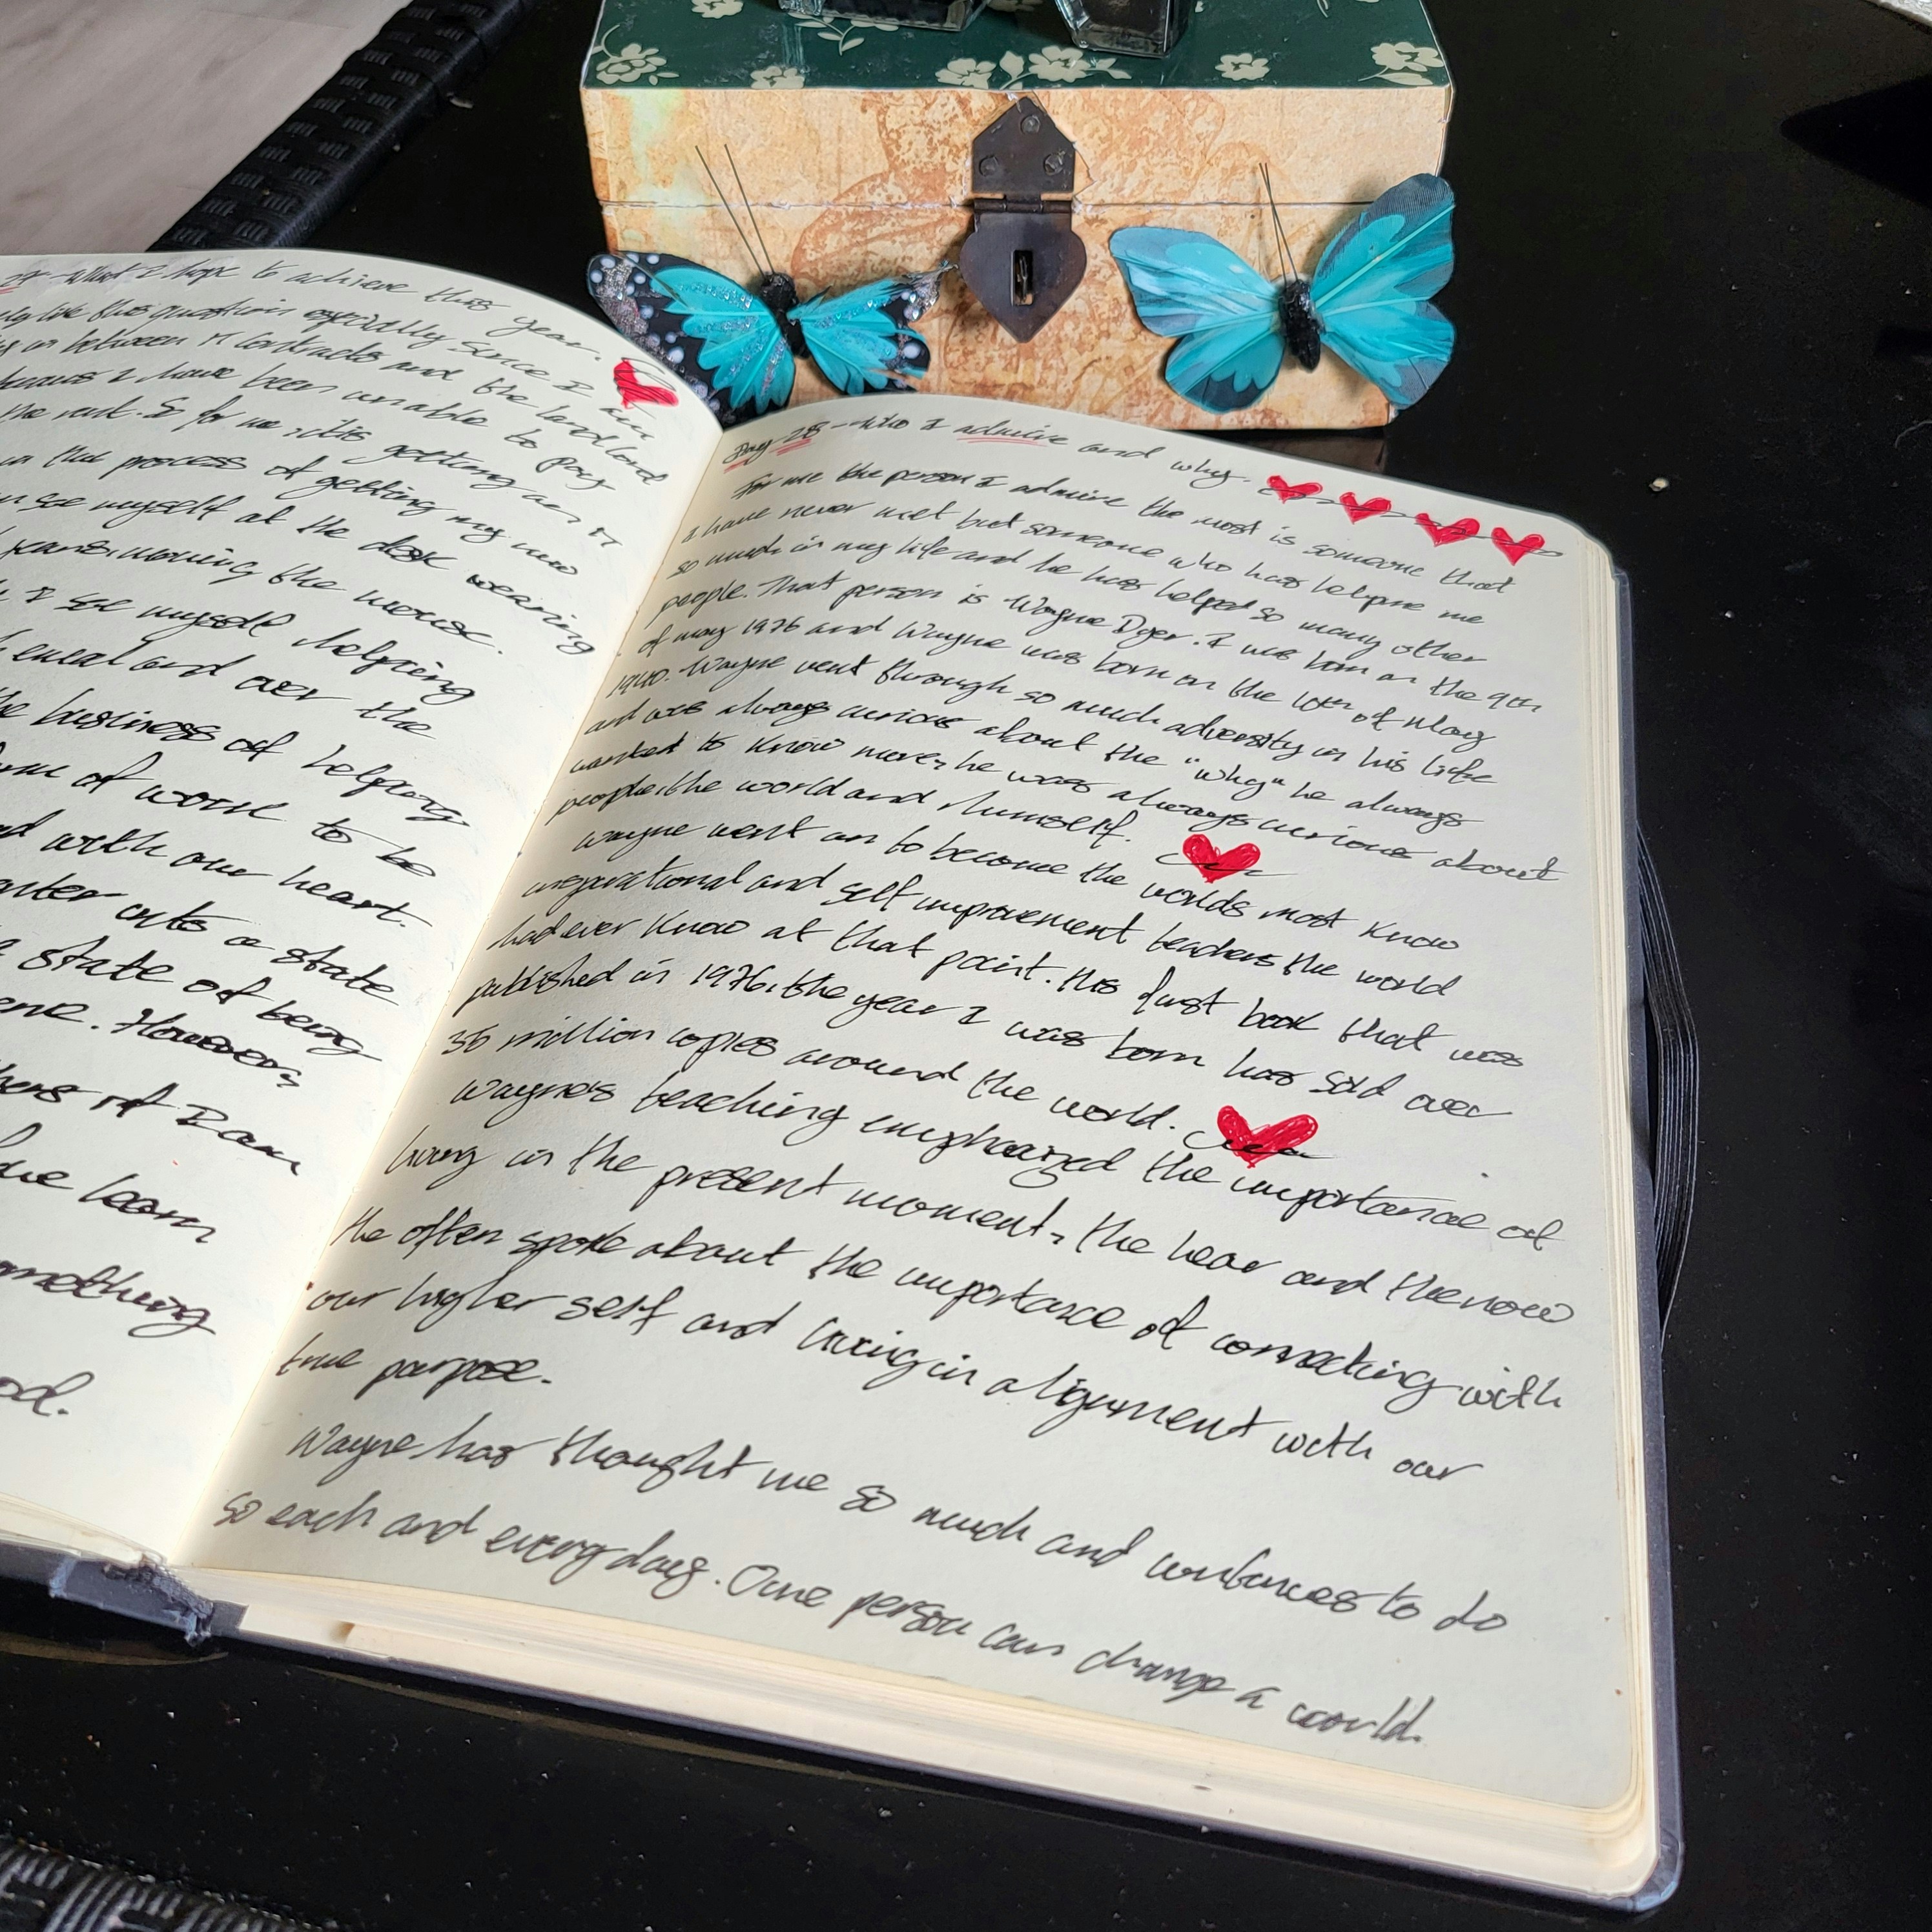 27 - What I hope to achieve this year.
like this question especially since I am
in between IT contracts and the landlord
knows I have been unable to pay
the rent. So for me, it is getting an IT
in the process of getting my new
see myself at the desk wearing
jeans, moving the mouse.
I see myself helping
email and over the
the business of helping
of work to be
with our heart.
enter into a state
state of being
However,
of Ram
learn
something
Day 28 - Who I admire and why.
For me the person I admire the most is someone that
I have never met but someone who has helpme me
so much in my life and he has helped so many other
people. That person is Wayne Dyer. I was born on the 9th
of may 1976 and Wayne was born on the 10th of May
1940. Wayne went through so much adversity in his life
and was always curious about the "why" he always
wanted to know more, he was always curious about
people, the world and himself.
Wayne went on to become the worlds most know
inspirational and self improvement teachers the world
had ever know at that point. His first book that was
published in 1976, the year I was born has sold over
36 million copies around the world.
Wayne's teaching emphasized the importance of
living in the present moment, the hear and the now
He often spoke about the importance of connecting with
our higher self and living in alignment with our
true purpose.
Wayne has thought me so much and continues to do
so each and every day. One person can change a world.